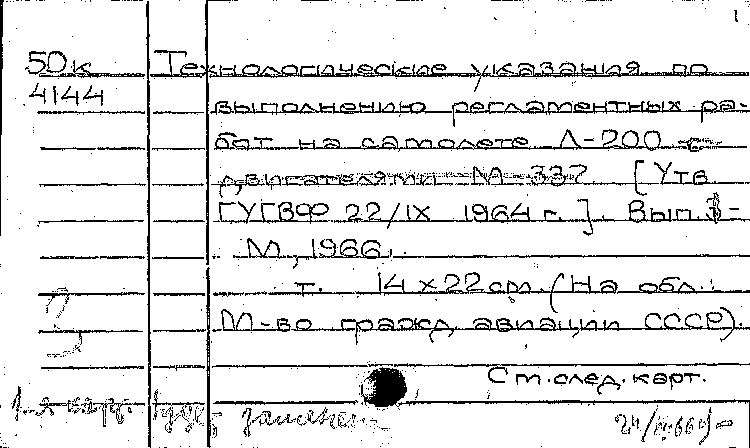 1
50к Технологические указания по
4144 выполнению регламентных ра-
бот на самолете Л-200 с
двигателями М-337. [Утв.
ГУГВФ 22/IX 1964 г.]. Вып. 1-
М., 1966.
т. 14 х 22 см. (На обл.:
М-во гражд. авиации СССР).
См. след. карт.
1-я карт. будет заменена